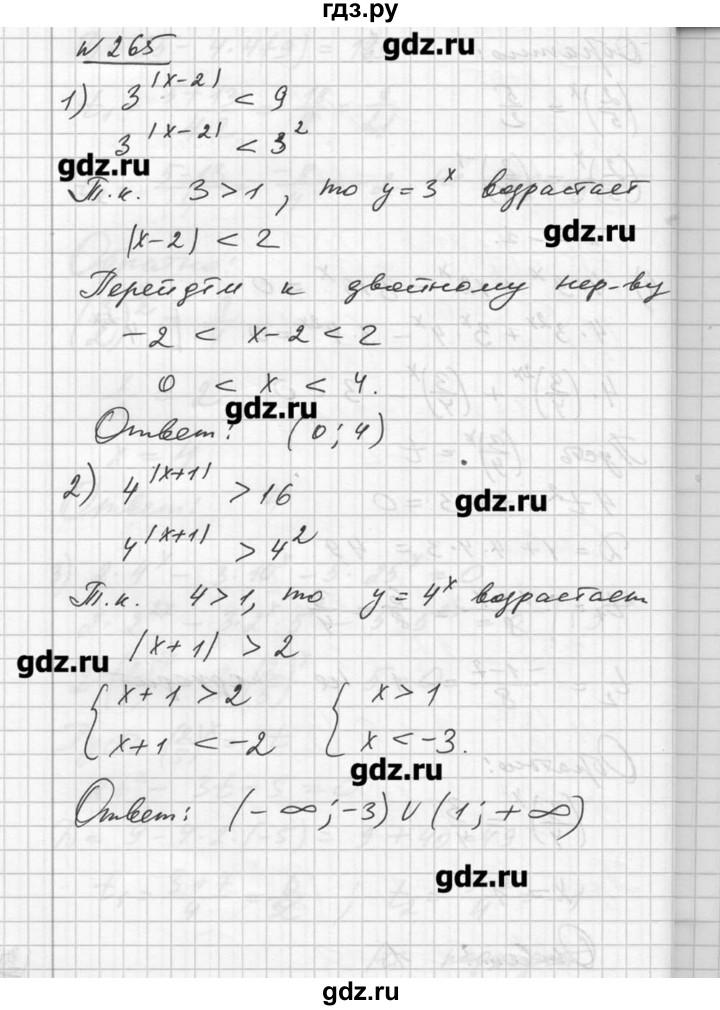 гдз.ру
№ 265
gdz.ru
1) 3^|x-2| < 9
3^|x-2| < 3^2
gdz.ru
Т.к. 3>1, то y=3^x возрастает
|x-2| < 2
gdz.ru
Перейдём к двойному нер-ву
-2 < x-2 < 2
0 < x < 4.
gdz.ru
Ответ: (0; 4)
2) 4^|x+1| > 16
gdz.ru
4^|x+1| > 4^2
Т.к. 4>1, то y=4^x возрастает
|x+1| > 2
gdz.ru
{ x+1 > 2 { x > 1
x+1 < -2 x < -3.
gdz.ru
Ответ: (-∞; -3) ∪ (1; +∞)
gdz.ru
gdz.ru